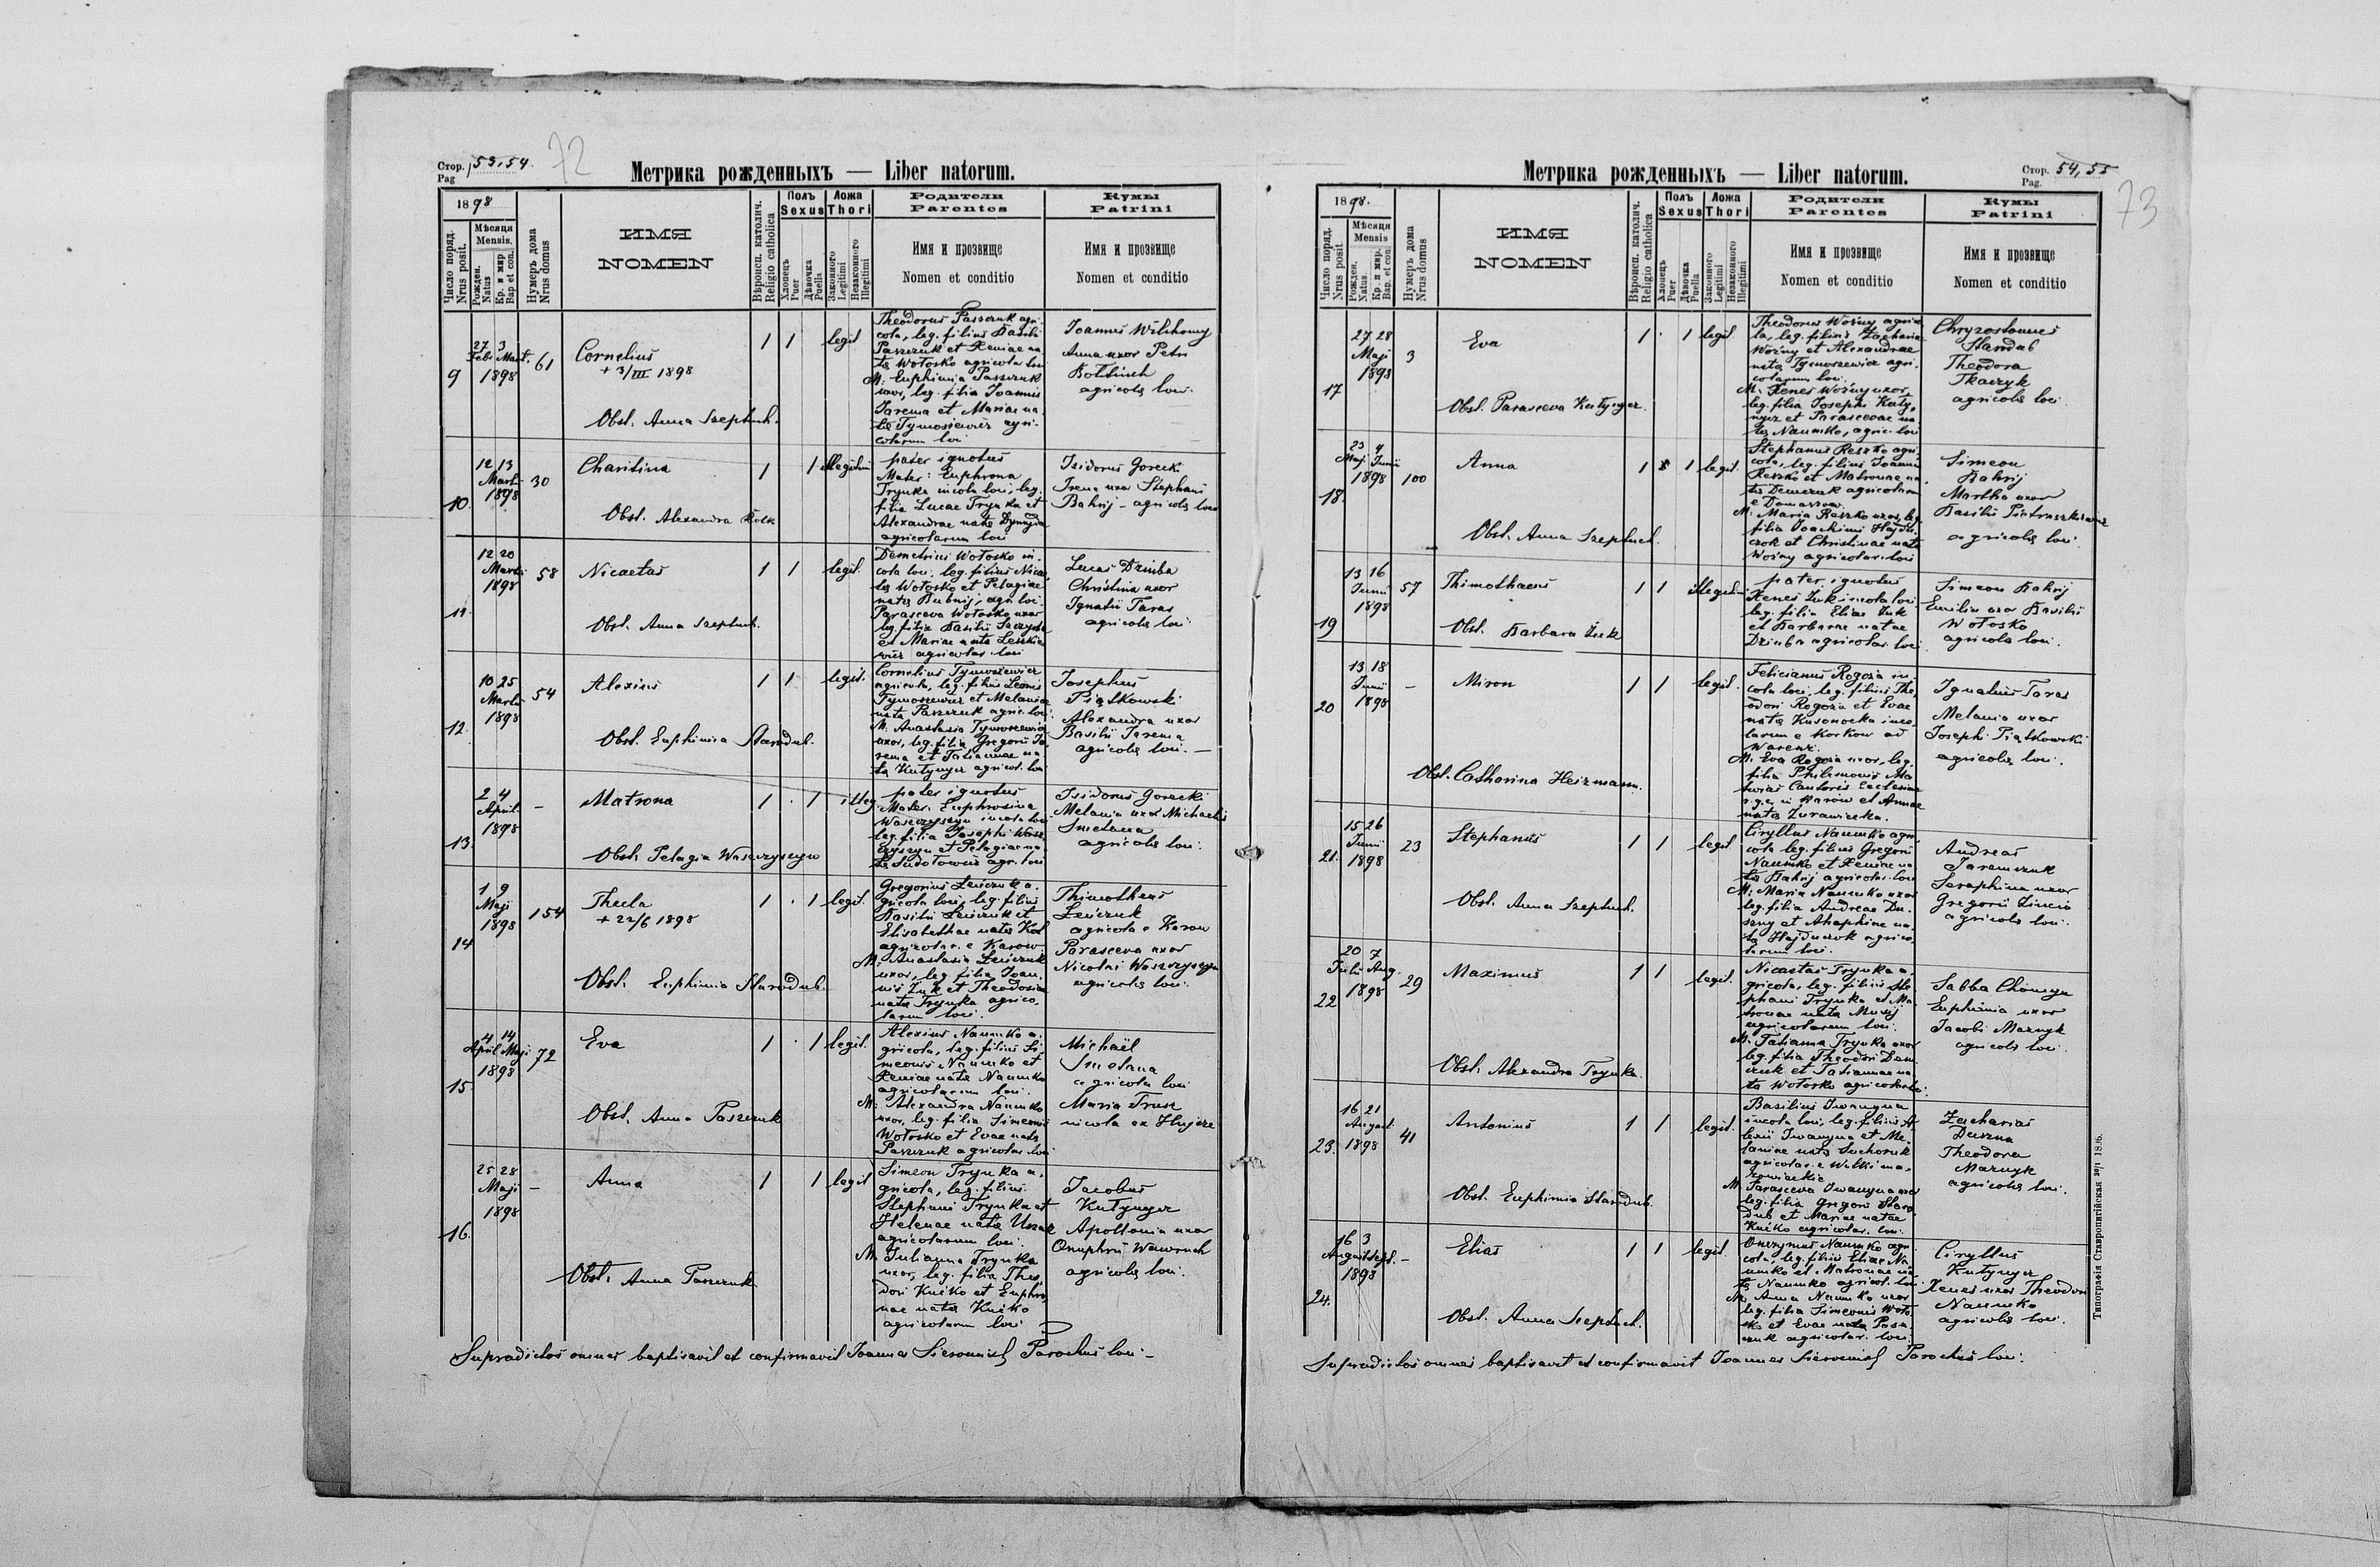 Стор. 53, 54.
Pag
72
Метрика рожденныхъ — Liber natorum.
1898
Число поряд. Nrus posit.
Мѣсяця Mensis.
Рожден. Natus
Кр. и мир Bap et con.
Нумеръ дома Nrus domus
ИМЯ
NOMEN
Вѣроисп. католич. Religio catholica
Полъ
Sexus
Хлопець Puer
Дѣвочка Puella
Ложа
Thori
Законного Legitimi
Незаконного Illegitimi
Родители
Parentes
Имя и прозвище
Nomen et conditio
Кумы
Patrini
Имя и прозвище
Nomen et conditio
9
27 3
Febr Mart.
1898
61
Cornelius
+ 3/III 1898
Obst. Anna Szeptuch.
1 1 legit
Theodorus Paszczuk agri-
cola, leg. filius Basilii
Paszczuk et Xeniae na-
tae Wołosko agricolar loci
M: Euphimia Paszczuk
uxor, leg. filia Joannis
Jarema et Mariae na-
tae Tymoszewicz agri-
colarum loci
Joannes
Anna uxor Petri
agricolae loci.
10.
12 13
Martii
1898
30
Charitina
Obst. Alexandra
1 1 illegitimi
pater ignotus
Mater: Euphrona
Trynka incola loci, leg.
filia Lucae Trynka et
Alexandrae natae
agricolarum loci
Isidorus Gorecki
Irena uxor Stephani
Bahrij - agricolae loci
11.
12 20
Martii
1898
58
Nicaetas
Obst. Anna Szeptuch.
1 1 legit.
Demetrius Wołosko in-
cola loci, leg. filius Nicae-
tae Wołosko et Pelagiae
natae Bubnij, agr. loci.
Parasceva Wołosko uxor
leg. filia Basilii
et Mariae nata Leszkie-
wicz agricolar loci
Lucas Dziuba
Christina uxor
Ignatii Taras
agricolae loci.
12.
10 25
Martii
1898
54
Alexius
Obst. Euphimia Starodub.
1 1 legit.
Cornelius Tymoszewicz
agricola, leg. filius Leonis
Tymoszewicz et Melaniae
nata Paszczuk agric. loci
M. Anastasia Tymoszewicz
uxor, leg. filia Gregorii Ja-
rema et Tatiannae na-
ta Kutynyez agricol. loci
Josephus
Piątkowski
Alexandra uxor
Basilii Jarema
agricolae loci. —
13.
2 4
April
1898
-
Matrona
Obst. Pelagia Waszczyszyn
1 . 1 illeg.
pater ignotus
Mater. Euphrosina
Waszczyszyn incola loci
leg. filia Josephi Wasz-
czyszyn et Pelagiae na-
tae agr. loci
Isidorus Gorecki
Melania uxor Michaelis
Smetana
agricolae loci.
14
1 9
Maji
1898
154
Thecla
+ 22/6 1898
Obst. Euphimia Starodub.
1 . 1 legit.
Gregorius Leńczuk a-
gricola loci, leg. filius
Basilii Leńczuk et
Elisabethae natae Kol
agricolar. e Karow.
M: Anastasia Leńczuk
uxor, leg. filia Joan-
nis Żuk et Theodosiae
nata Trynka agrico-
larum loci.
Thimotheus
Leńczuk
agricola e Karow
Parasceva uxor
Nicolai Waszczyszyn
agricolae loci.
15
4 14
April Maji
1898
72
Eva
Obst. Anna Paszczuk
1 . 1 legit.
Alexius Naumko a-
gricola, leg. filius Si-
meonis Naumko et
Xeniae nata Naumko
agricolarum loci.
M: Alexandra Naumko
uxor, leg. filia Simeonis
Wołosko et Evae nata
Paszczuk agricolar loci
Michaël
Smetana
agricola loci
Maria Trusz
incola ex Hujcze
16.
25 28
Maji
1898
-
Anna
Obst. Anna Paszczuk
1 1 legit
Simeon Trynka a-
gricola, leg. filius
Stephani Trynka et
Helenae nata
agricolarum loci.
M. Julianna Trynka
uxor, leg. filia Theo-
dori Kućko et Euphro-
nae nata Kućko
agricolarum loci
Jacobus
Kutynyez
Apollonia uxor
Onuphrii
agricolae loci.
Supradictos omnes baptisavit et confirmavit Joannes Parochus loci.-
Стор. 54, 55
Pag.
73
Метрика рожденныхъ — Liber natorum.
1898.
Число поряд. Nrus posit
Мѣсяця Mensis
Рожден. Natus
Кр. и мир. Bap. et con.
Нумеръ дома Nrus domus
ИМЯ
NOMEN
Вѣроисп. католич. Religio catholica
Полъ
Sexus
Хлопець Puer
Дѣвочка Puella
Ложа
Thori
Законного Legitimi
Незаконного Illegitimi
Родители
Parentes
Имя и прозвище
Nomen et conditio
Кумы
Patrini
Имя и прозвище
Nomen et conditio
17
27 28
Maji
1898
3
Eva
Obst. Parasceva Kutynyez.
1 . 1 legit
Theodorus Woźny agrico-
la, leg. filius Zachariae
Woźny et Alexandrae
nata Tymoszewicz agri-
colarum loci.
M. Xenes Woźny uxor,
leg. filia Josephi Kuty-
nyez et Parascevae na-
tae Naumko, agric. loci
Chryzostomus
Starodub
Theodora
Tkaczyk
agricolae loci
18.
23 4
Maji Junii
1898
100
Anna
Obst. Anna Szeptuch.
1 1 legit.
Stephanus Reszko agri-
cola, leg. filius Joannis
Reszko et Matronae na-
tae Demczuk agricolarum
M: Maria Reszko uxor, leg.
filia Joachimi Hajdu-
czok et Christinae nata
Woźny agricolar. loci
Simeon
Bahrij
Martha uxor
Basilii Pietruszkiewicz
agricolae loci.
19
13 16
Junii
1898
57
Thimothaeus
Obst. Barbara Żuk
1 1 illegit.
pater ignotus
Xenes Żuk incola loci
leg. filia Eliae Żuk
et Barbarae natae
Dziuba agricolar. loci.
Simeon Bahrij
Emilia uxor Basilii
Wołosko
agricolae loci.
20
13 18
Junii
1898
-
Miron
Obst. Catharina Heizmann.
1 1 legit.
Felicianus Rogoża in-
cola loci, leg. filius The-
odori Rogoża et Evae
nata inco-
larum e Korkow ad
M. Eva Rogoża uxor, leg.
filia Philemonis
Cantoris Ecclesiae
r.g.c. in Karów et Annae
nata Żurawicka.
Ignatius Taras
Melania uxor
Josephi Piątkowski
agricolae loci.
21.
15 26
Junii
1898
23
Stephanus
Obst. Anna Szeptuch.
1 1 legit
Ciryllus Naumko agri-
cola leg. filius Gregorii
Naumko et Xeniae na-
tae Bahrij agricolar. loci
M: Maria Naumko uxor
leg. filia Andreae Du-
szny et Ahaphiae na-
ta Hajduczok agrico-
larum loci.
Andreas
Jaremczuk
Seraphina uxor
Gregorii
agricolae loci.
22
20 7
Julii Aug.
1898
29
Maximus
Obst. Alexandra Trynka.
1 1 legit.
Nicaetas Trynka a-
gricola, leg. filius Ste-
phani Trynka et Ma-
tronae nata
agricolarum loci.
M. Tatianna Trynka uxor
leg. filia Theodori Dem-
czuk et Tatiannae na-
ta Wołosko agricolar loci.
Sabba Chomyn
Euphimia uxor
Jacobi Mazuryk
agricolae loci.
23.
16 21
August.
1898
41
Antonius
Obst. Euphimia Starodub.
1 1 legit.
Basilius Iwanyna
incola loci, leg. filius A-
lexii Iwanyna et Me-
laniae nata Suchoruk
agricolar. e Wulki ma-
zowieckie.
M. Parasceva Iwanyna uxor
leg. filia Gregorii Staro-
dub et Mariae natae
Kućko agricolar. loci.
Zacharias
Duszna
Theodora
Mazuryk
agricolae loci.
24.
16 3
August Sept.
1898
-
Elias
Obst. Anna Szeptuch.
1 1 legit.
Onezymus Naumko agri-
cola, leg. filius Eliae Na-
umko et Matronae na-
ta Naumko agricol. loci
M. Anna Naumko uxor
leg. filia Simeonis Woło-
sko et Evae nata Pasz-
czuk agricolar. loci.
Ciryllus
Kutynyez
Xenes uxor Theodori
Naumko
agricolae loci.
Supradictos omnes baptisavit et confirmavit Joannes Parochus loci.